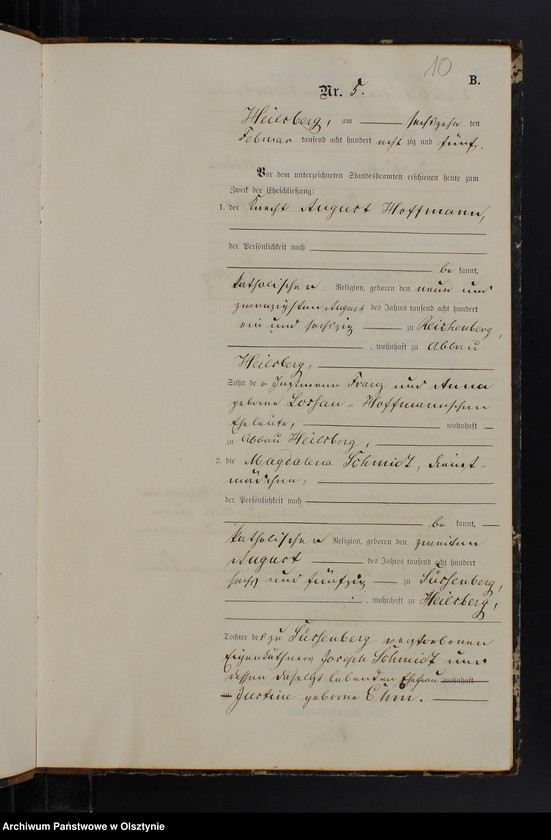 10
B.
Nr. 5.
Heilsberg, am sechszehn ten
Februar tausend acht hundert acht zig und fünf.
Vor dem unterzeichneten Standesbeamten erschienen heute zum
Zweck der Eheschließung:
1. der Knecht August Hoffmann,
der Persönlichkeit nach
be kannt,
katholischer Religion, geboren den neun und
zwanzigsten August des Jahres tausend acht hundert
ein und sechszig zu Reichenberg,
, wohnhaft zu Abbau
Heilsberg,
Sohn des Instmann Franz und Anna
geborne Loshau - Hoffmannschen
Eheleute, wohnhaft
zu Abbau Heilsberg,
2. die Magdalena Schmidt, Dienst-
mädchen,
der Persönlichkeit nach
be kannt,
katholischer Religion, geboren den zweiten
August des Jahres tausend acht hundert
sechs und fünfzig zu Süssenberg,
, wohnhaft zu Heilsberg,
Tochter des zu Süssenberg verstorbenen
Eigenkäthners Joseph Schmidt und
dessen daselbst lebenden Ehefrau wohnhaft
zu Justine geborne Ehm.
Archiwum Państwowe w Olsztynie